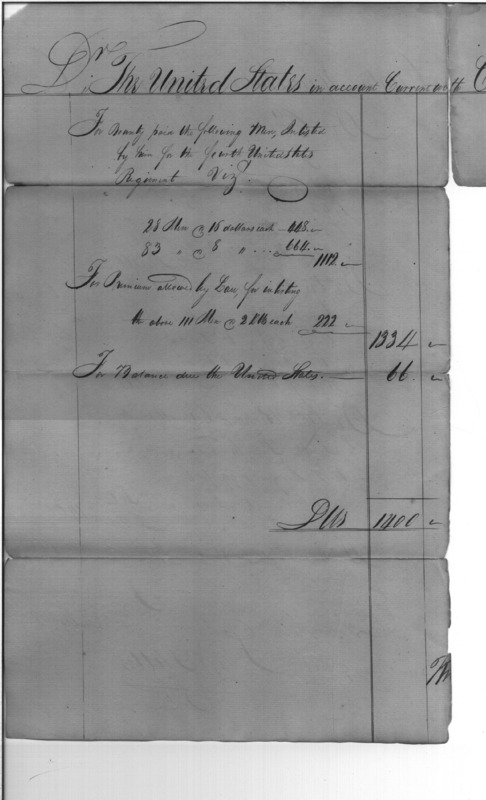 Dr The United States in account Current with C
For Bounty paid the following Men, Inlisted
by him for the fourth United States
Regiment Vizt.
28 Men @ 16 dollars each 448. "
83 " @ 8 " ... 664. "
1112 "
For Premium allowed by Law, for inlisting
the above 111 Men @ 2 Dlls each 222 "
1334 "
For Balance due the United States. 66. "
Dlls 1400 "